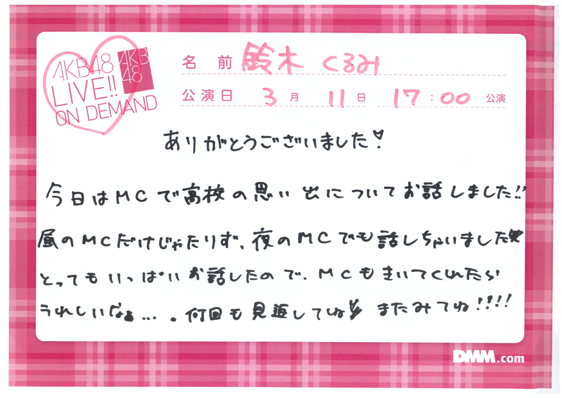 AKB48
LIVE!!
ON DEMAND
AKB
48
名前 鈴木くるみ
公演日 3月11日 17:00公演
ありがとうございました♡!
今日はMCで高校の思い出についてお話しました!!
昼のMCだけじゃたりず、夜のMCでも話しちゃいました
とってもいっぱいお話したので、MCもきいてくれたら
うれしいなぁ...。何回も見返してね またみてね!!!!
DMM.com